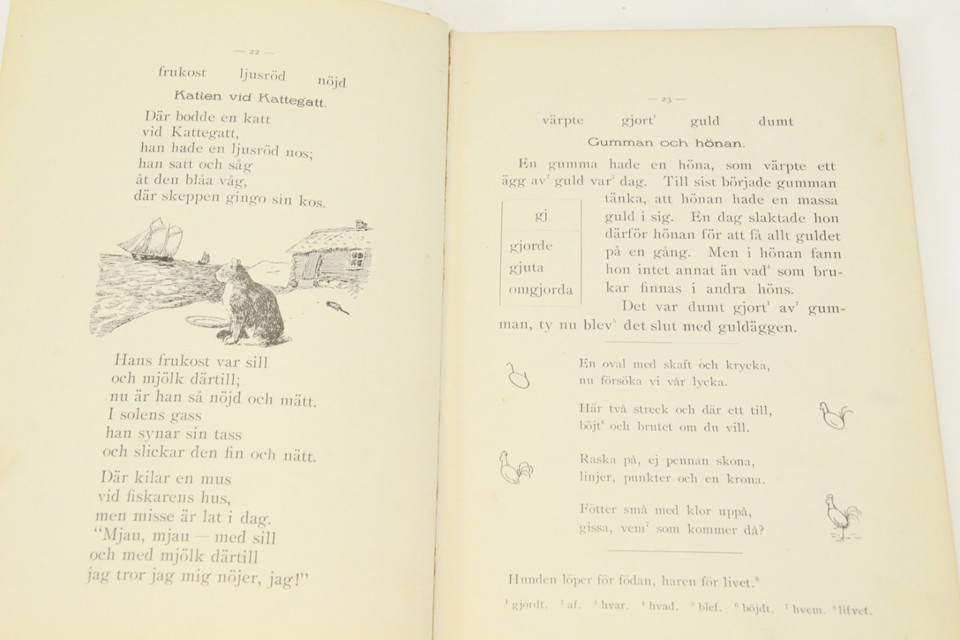 — 22 —
frukost ljusröd nöjd
Katten vid Kattegatt.
Där bodde en katt
vid Kattegatt,
han hade en ljusröd nos;
han satt och såg
åt den blåa våg,
där skeppen gingo sin kos.
Hans frukost var sill
och mjölk därtill;
nu är han så nöjd och mätt.
I solens gass
han synar sin tass
och slickar den fin och nätt.
Där kilar en mus
vid fiskarens hus,
men misse är lat i dag.
“Mjau, mjau — med sill
och med mjölk därtill
jag tror jag mig nöjer, jag!”
— 23 —
värpte gjort¹ guld dumt
Gumman och hönan.
En gumma hade en höna, som värpte ett
ägg av² guld var³ dag. Till sist började gumman
tänka, att hönan hade en massa
guld i sig. En dag slaktade hon
därför hönan för att få allt guldet
på en gång. Men i hönan fann
hon intet annat än vad⁴ som bru-
kar finnas i andra höns.
gj
gjorde
gjuta
omgjorda
Det var dumt gjort¹ av² gum-
man, ty nu blev⁵ det slut med guldäggen.
En oval med skaft och krycka,
nu försöka vi vår lycka.
Här två streck och där ett till,
böjt⁶ och brutet om du vill.
Raska på, ej pennan skona,
linjer, punkter och en krona.
Fötter små med klor uppå,
gissa, vem⁷ som kommer då?
Hunden löper för födan, haren för livet.⁸
¹ gjordt. ² af. ³ hvar. ⁴ hvad. ⁵ blef. ⁶ böjdt. ⁷ hvem. ⁸ lifvet.